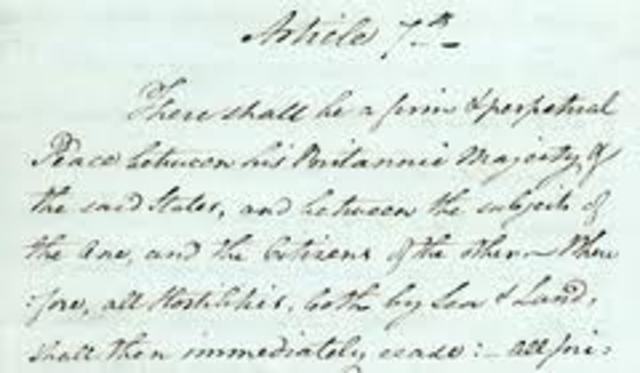 Article 7th
There shall be a firm & perpetual
Peace between his Britannic Majesty &
the said States, and between the subjects of
the one, and the Citizens of the other. Where
:fore, all Hostilities, both by Sea & Land,
shall then immediately cease: _ All pri: